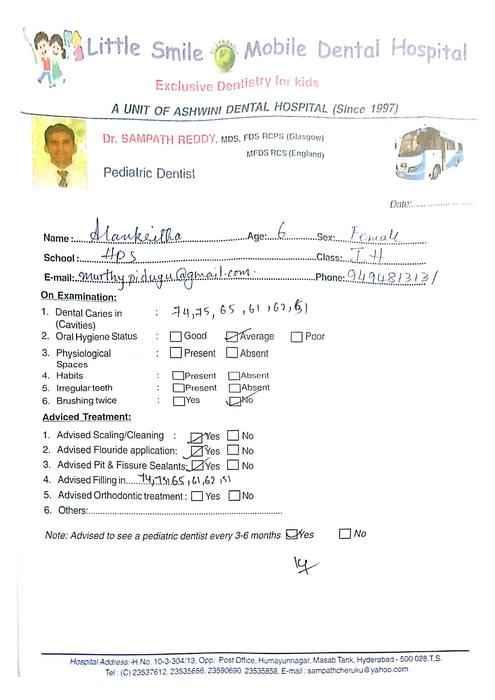 Little Smile Mobile Dental Hospital
Exclusive Dentistry for kids
A UNIT OF ASHWINI DENTAL HOSPITAL (Since 1997)
Dr. SAMPATH REDDY, MDS, FDS RCPS (Glasgow)
MFDS RCS (England)
Pediatric Dentist
Date:
Name: Alankritha Age: 6 Sex: Female
School: HPS Class: I H
E-mail: murthy.pidugu@gmail.com. Phone: 949481313/
On Examination:
1. Dental Caries in (Cavities) : 74, 75, 65, 61, 62, 51
2. Oral Hygiene Status : Good Average Poor
3. Physiological Spaces : Present Absent
4. Habits : Present Absent
5. Irregular teeth : Present Absent
6. Brushing twice : Yes No
Adviced Treatment:
1. Advised Scaling/Cleaning : Yes No
2. Advised Flouride application: Yes No
3. Advised Pit & Fissure Sealants: Yes No
4. Advised Filling in 74, 75, 65, 61, 62, 51
5. Advised Orthodontic treatment : Yes No
6. Others:
Note: Advised to see a pediatric dentist every 3-6 months Yes No
Hospital Address:-H.No. 10-3-304/13, Opp. Post Office, Humayunnagar, Masab Tank, Hyderabad - 500 028.T.S.
Tel : (C) 23537612, 23535656, 23590690, 23535858, E-mail : sampathcheruku@yahoo.com